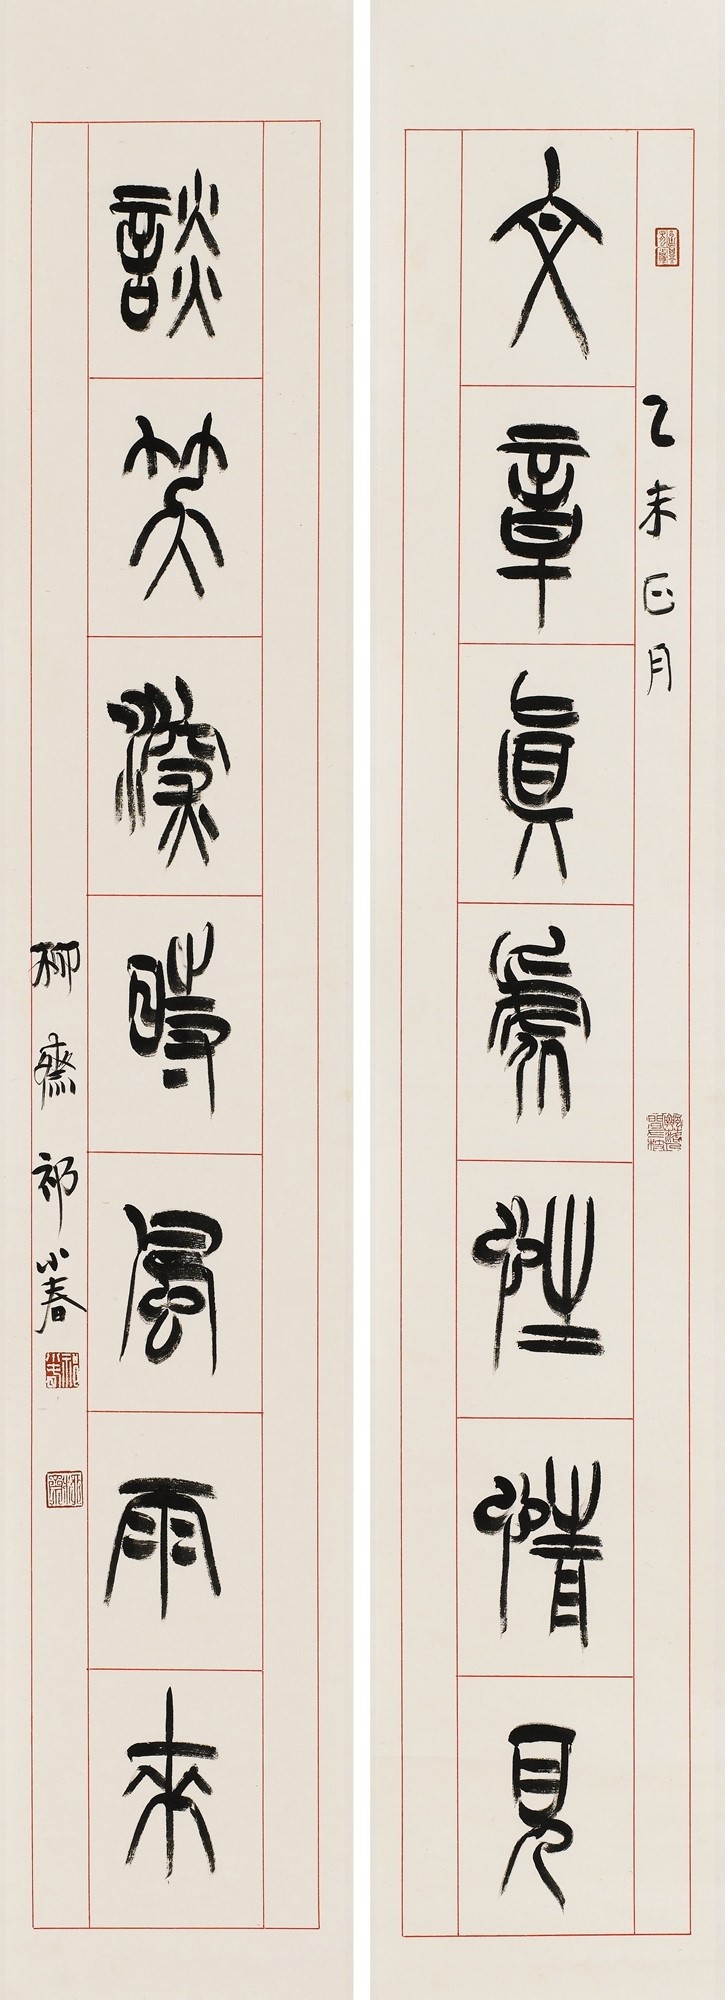 乙未正月
文章真處性情見
談笑深時風雨來
柳齋祁小春